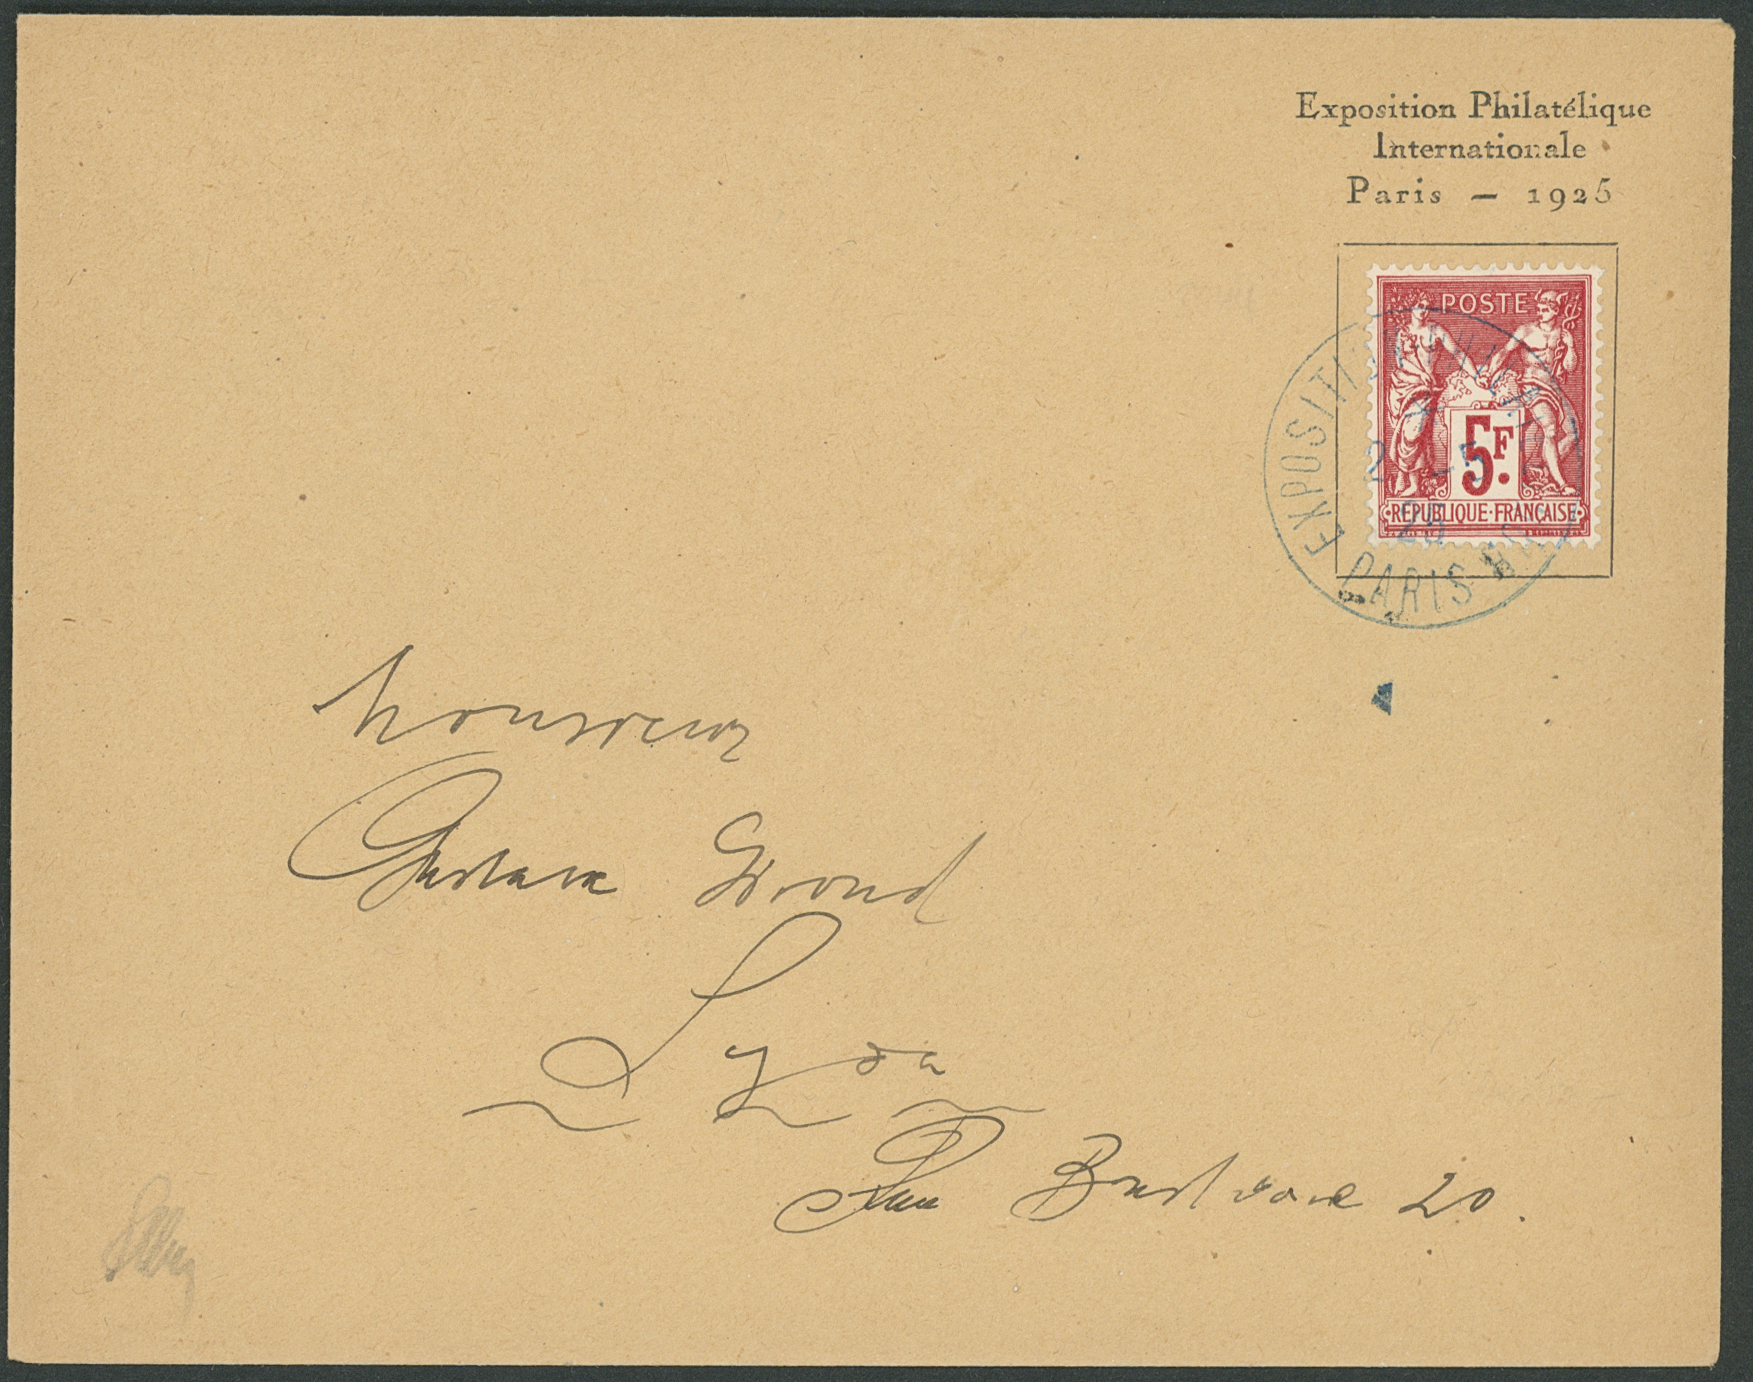 Exposition Philatélique
Internationale
Paris — 1925
POSTE
5F.
RÉPUBLIQUE·FRANÇAISE
EXPOSITION
2 -5
25
PARIS
Monsieur
Gustave
Lyon
Rue 20.